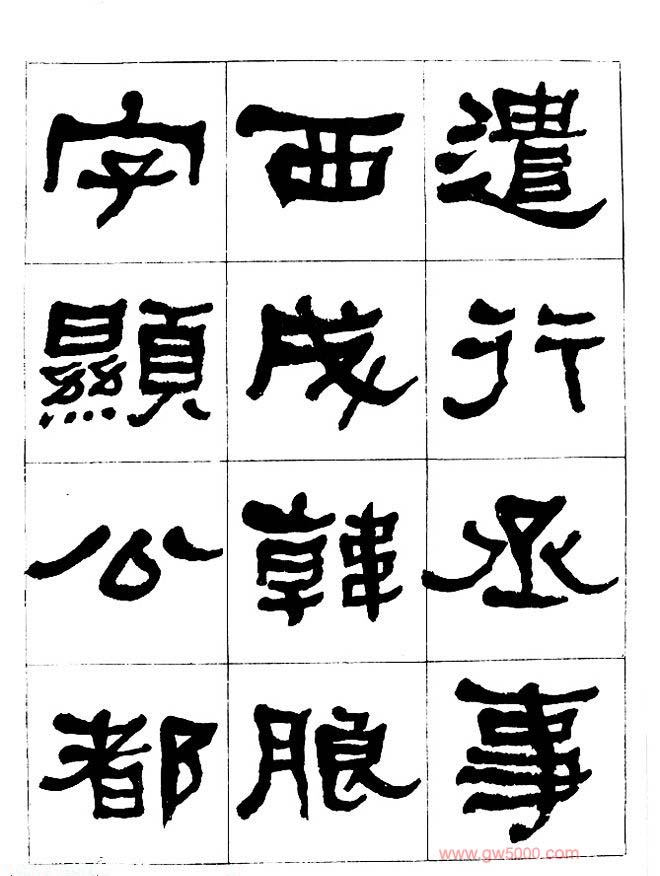 遣行丞事
西成韓朖
字顯公都
www.gw5000.com